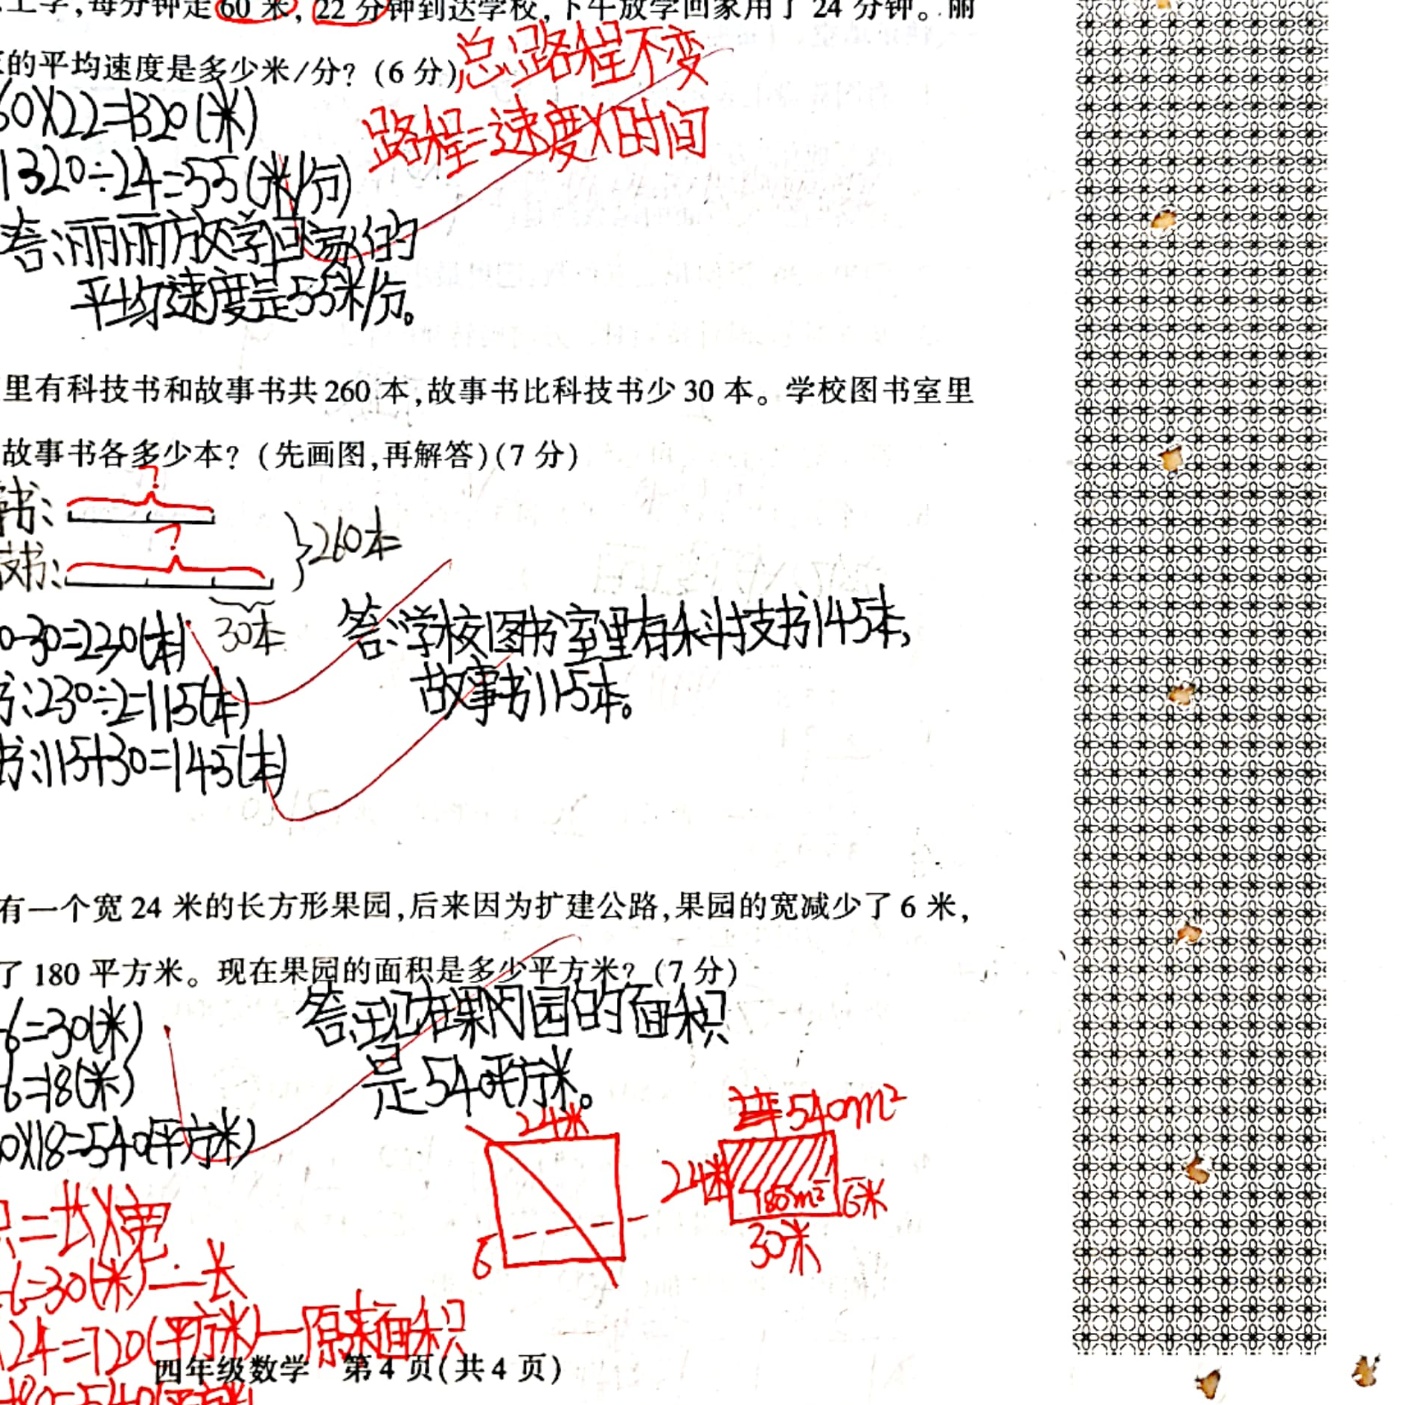 上学,每分钟走60米,22分钟到达学校,下午放学回家用了24分钟。丽
的平均速度是多少米/分?(6分)
总路程不变
路程=速度×时间
60×22=1320(米)
1320÷24=55(米/分)
答:丽丽放学回家的
平均速度是55米/分。
里有科技书和故事书共260本,故事书比科技书少30本。学校图书室里
故事书各多少本?(先画图,再解答)(7分)
?
事书:
?
技书:
}260本
30本
0-30=230(本)
书:230÷2=115(本)
书:115+30=145(本)
答:学校图书室里有科技书145本,
故事书115本。
有一个宽24米的长方形果园,后来因为扩建公路,果园的宽减少了6米,
了180平方米。现在果园的面积是多少平方米?(7分)
6=30(米)
6=18(米)
0×18=540(平方米)
答:现在果园的面积
是540平方米。
24米
6
540m²
24米
180m²
6米
30米
积=长×宽
6=30(米)—长
24=720(平方米)—原来面积
180=540(平方米)
四年级数学 第4页(共4页)